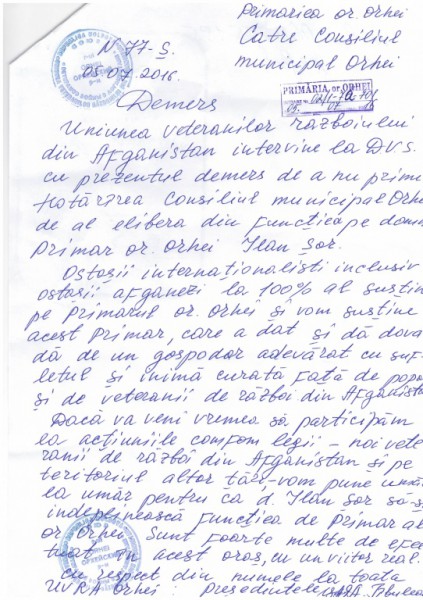 Primaria or. Orhei
N 77-S.
Catre Consiliul
05.07.2016.
municipal Orhei
PRIMĂRIA or. ORHEI
Demers
Uniunea veteranilor războiului
din Afganistan intervine la DVS.
cu prezentul demers de a nu prime
hotărîrea Consiliul municipal Orhe
de al elibera din funcția pe domn
Primar or. Orhei Ilan Șor.
Ostașii internaționaliști inclusiv
ostașii afganezi la 100% al susțin
pe Primarul or. Orhei și vom susține
acest Primar, care a dat și dă dova
dă de un gospodar adevărat cu suf-
letul și inimă curată față de popor
și de veteranii de război din Afganistan
Dacă va veni vremea să participăm
la acțiunile comfom legii - noi vete
ranii de război din Afganistan și pe
teritoriul altor țări-vom pune umăr
la umăr pentru ca d. Ilan Șor să-și
îndeplinească funcția de Primar al
or Orhei. Sunt foarte multe de efec
tuat în acest oraș, cu un viitor real.
cu respect din numele la toată
UVRA Orhei: președintele